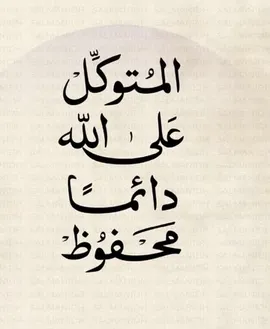 المُتوكِّل
عَلى الله
دائمًا
مَحفوُظْ